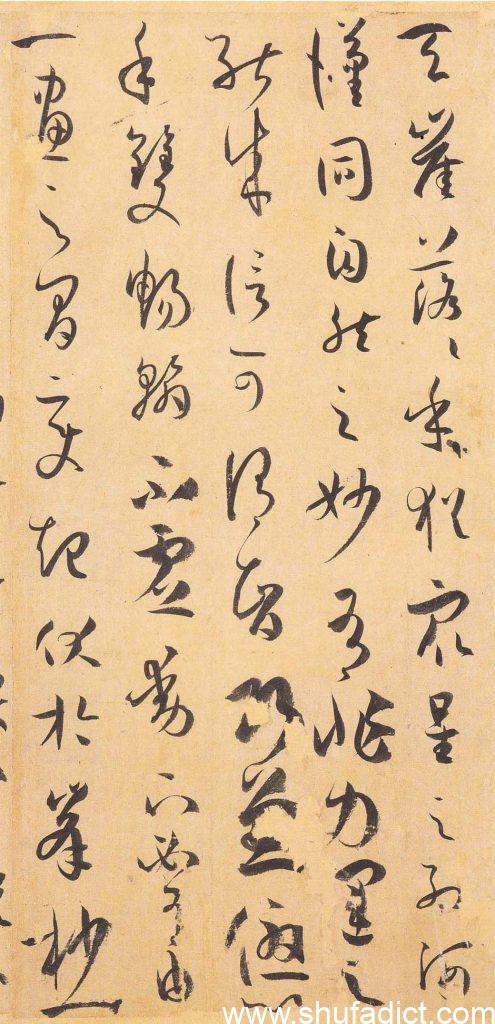 天崖落〻乎猶衆星之列河
漢同自然之妙有非力運之
能成信可謂智巧兼優心
手雙暢翰不虛動下必有由
一畫之間變起伏於峯杪一
www.shufadict.com